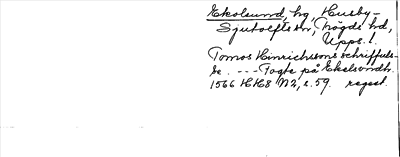 Ekolsund, hg, Husby-
Sjutolfts sn, Trögds hd,
Upps. l.
Tomos Hinrichssons schriffuel-
se. --- Fogte på Ekelsondh.
1566 HH8 N2, s. 59. regest.